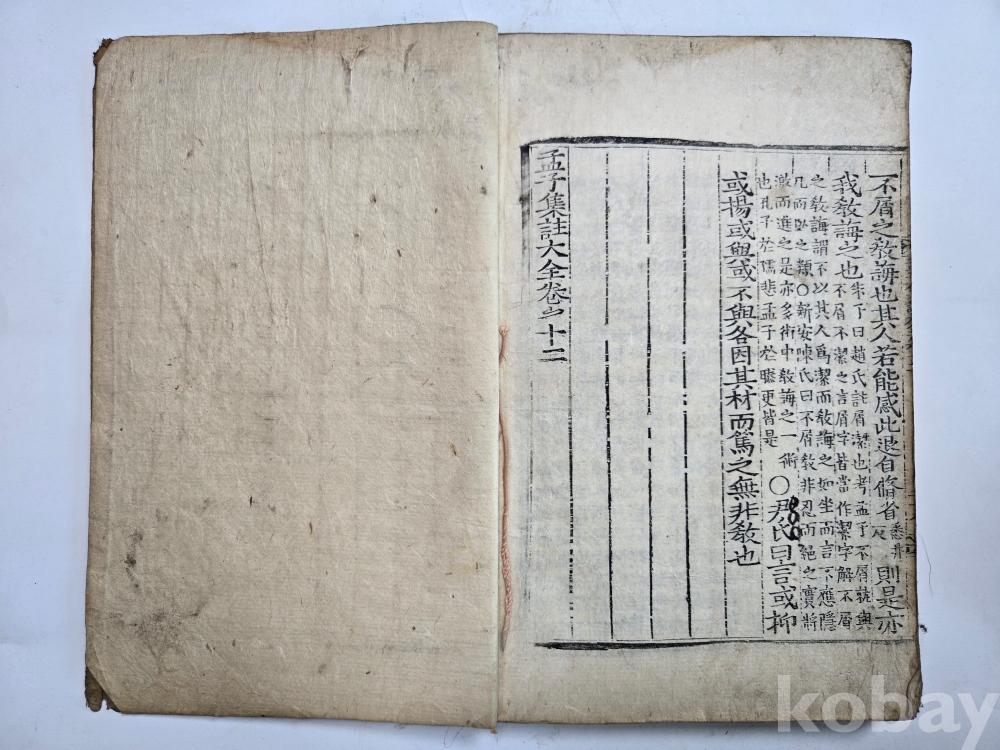 不屑之敎誨也其人若能感此退自脩省悉井反則是亦
我敎誨之也朱子曰趙氏註屑潔也考孟子不屑就與
不屑不潔之言屑字皆當作潔字解不屑
之敎誨謂不以其人爲潔而敎誨之如坐而言不應隱
几而臥之類○新安陳氏曰不屑敎非忍而絶之實將
激而進之是亦多術中敎誨之一術○尹氏曰言或抑
也孔子於孺悲孟子於滕更皆是
或揚或與或不與各因其材而篤之無非敎也
孟子集註大全卷之十二
kobay